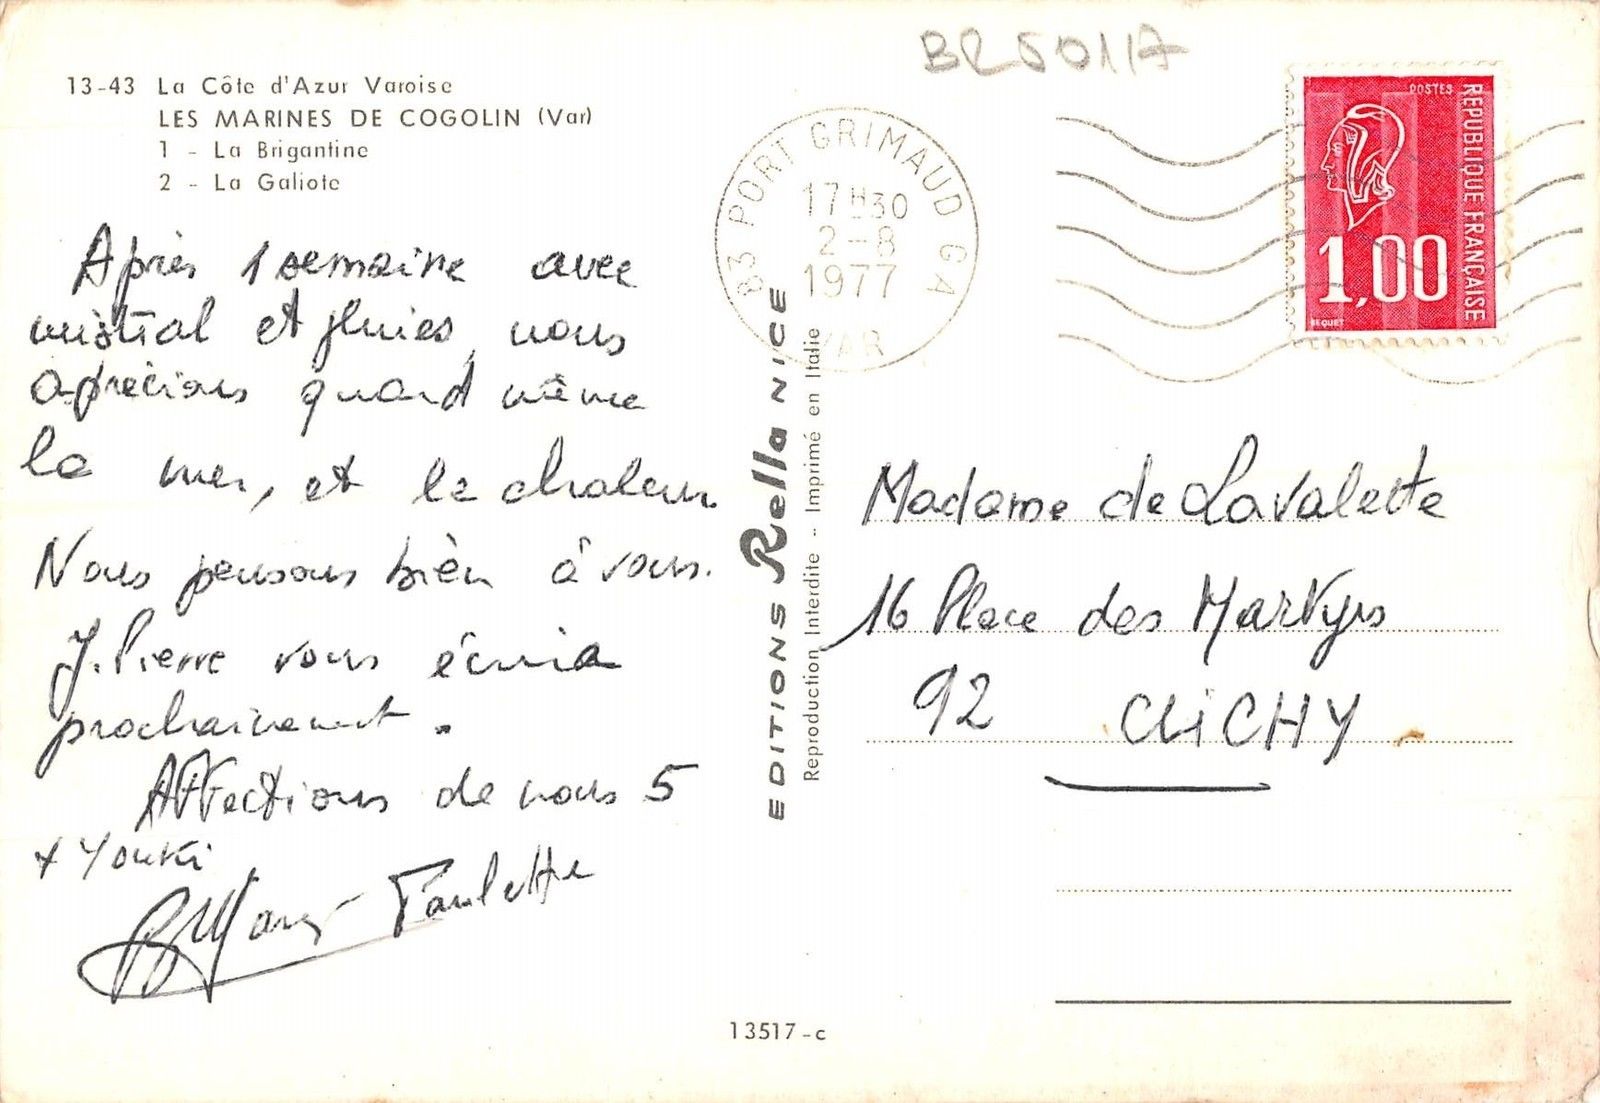 BR50117
13-43 La Côte d'Azur Varoise
LES MARINES DE COGOLIN (Var)
1 - La Brigantine
2 - La Galiote
Après 1 semaine avec
mistral et pluies, nous
apprécions quand même
la mer, et la chaleur.
Nous pensons bien à vous.
J. Pierre vous écrira
prochainement.
Affections de nous 5
+ Youki
Paulette
EDITIONS Rella NICE
Reproduction Interdite - Imprimé en Italie
13517-c
83 PORT GRIMAUD GA
17H30
2-8
1977
VAR
POSTES
REPUBLIQUE FRANÇAISE
1,00
BEQUET
Madame de Lavalette
16 Place des Martyrs
92 CLiCHY